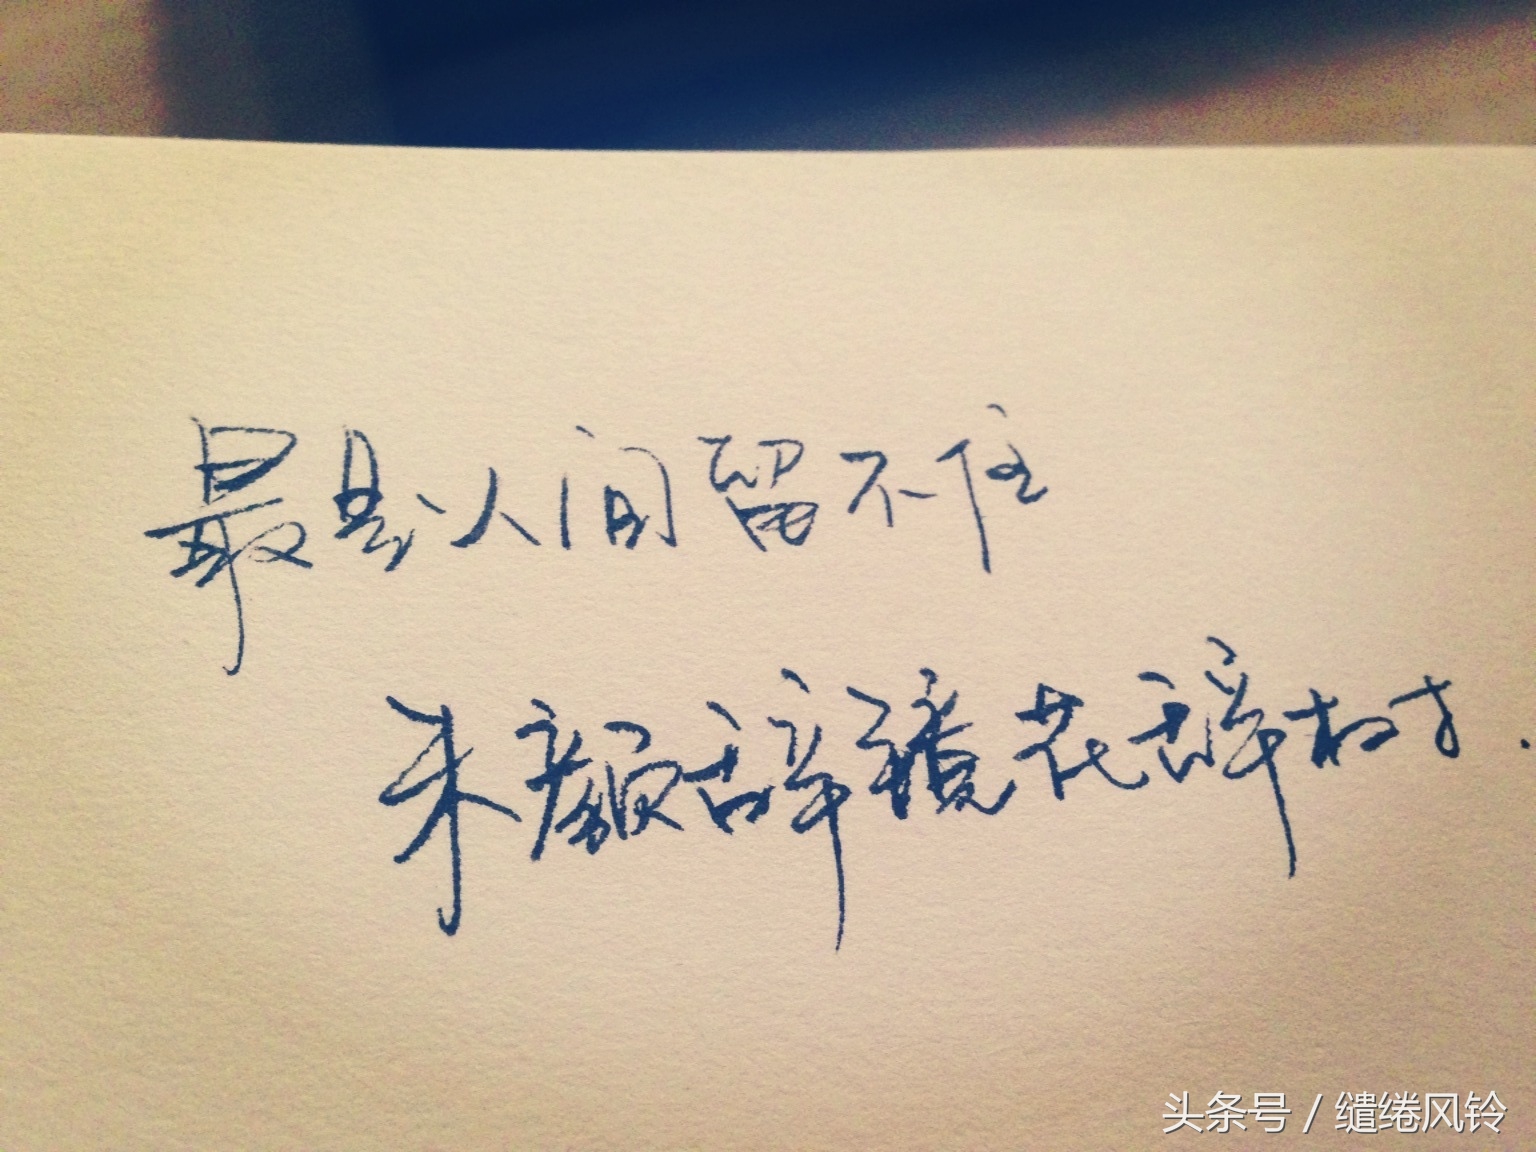 最是人间留不住
朱颜辞镜花辞树.
头条号 / 缱绻风铃